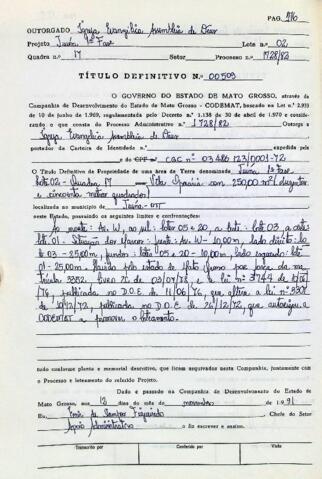 PAG. 276
OUTORGADO Igreja Evangélica Assembléia de Deus
Projeto Juina 1ª Fase Lote n.o 02
Quadra n.o 17 Setor Processo n.o 1728/82
TÍTULO DEFINITIVO N.o 00509
O GOVERNO DO ESTADO DE MATO GROSSO, através da
Companhia de Desenvolvimento do Estado de Mato Grosso - CODEMAT, baseado na Lei n.o 2.933
de 10 de junho de 1969, regulamentada pelo Decreto n.o 1.138 de 30 de abril de 1970 e conside-
rando o que consta do Processo Administrativo n.o 1728/82 Outorga a
Igreja Evangélica Assembléia de Deus
portador da Carteira de Identidade n.o
e do CPF CGC nº 03.486.123/0001-72
O Título Definitivo de Propriedade de uma área de Terra denominada Juina 1ª fase
Lote 02 - Quadra 17 com 250,00 m² (duzentos
e cincoenta metros quadrados)
localizada no município de Juina-MT
neste Estado, passando os seguintes limites e confrontações:
Ao norte: Av. W, ao sul: lotes 05 e 20, a Leste: lote 03, a oeste:
lote 01. frente: Av. W - 10,00m, lado direito: lo
te 03 - 25,00m, fundos: lotes 05 e 20 - 10,00m, lado esquerdo: lote
01 - 25,00m. pelo estado de Mato Grosso por força da ma
trícula 3352, 02 de 03/07/78, e a lei nº 3744 de
/76, publicada no D.O.E. de 11/06/76, que altera a lei nº 3307
de 18/12/72, publicada no D.O.E. de 26/12/72, que autorizou a
CODEMAT a promover o loteamento.
tudo conforme planta e memorial descritivo, que ficam arquivados nesta Companhia, juntamente com
o Processo e loteamento do referido Projeto.
Dado e passado na Companhia de Desenvolvimento do Estado de
Mato Grosso, aos 13 dias do mês de novembro de 1.991
Eu, Figueiredo Chefe do Setor
Apoio Administrativo o fiz escrever e assino.
Transcrito por
Conferido por
Visto